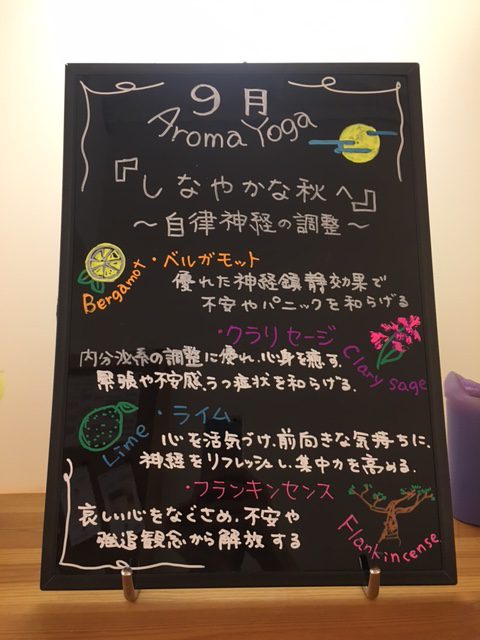 9月
Aroma Yoga
『しなやかな秋へ』
～自律神経の調整～
・ベルガモット
Bergamot
優れた神経鎮静効果で
不安やパニックを和らげる
・クラリセージ
Clary sage
内分泌系の調整に優れ、心身を癒す.
緊張や不安感、うつ症状を和らげる.
・ライム
Lime
心を活気づけ、前向きな気持ちに、
神経をリフレッシュし、集中力を高める.
・フランキンセンス
Flankincense
哀しい心をなぐさめ、不安や
強迫観念から解放する